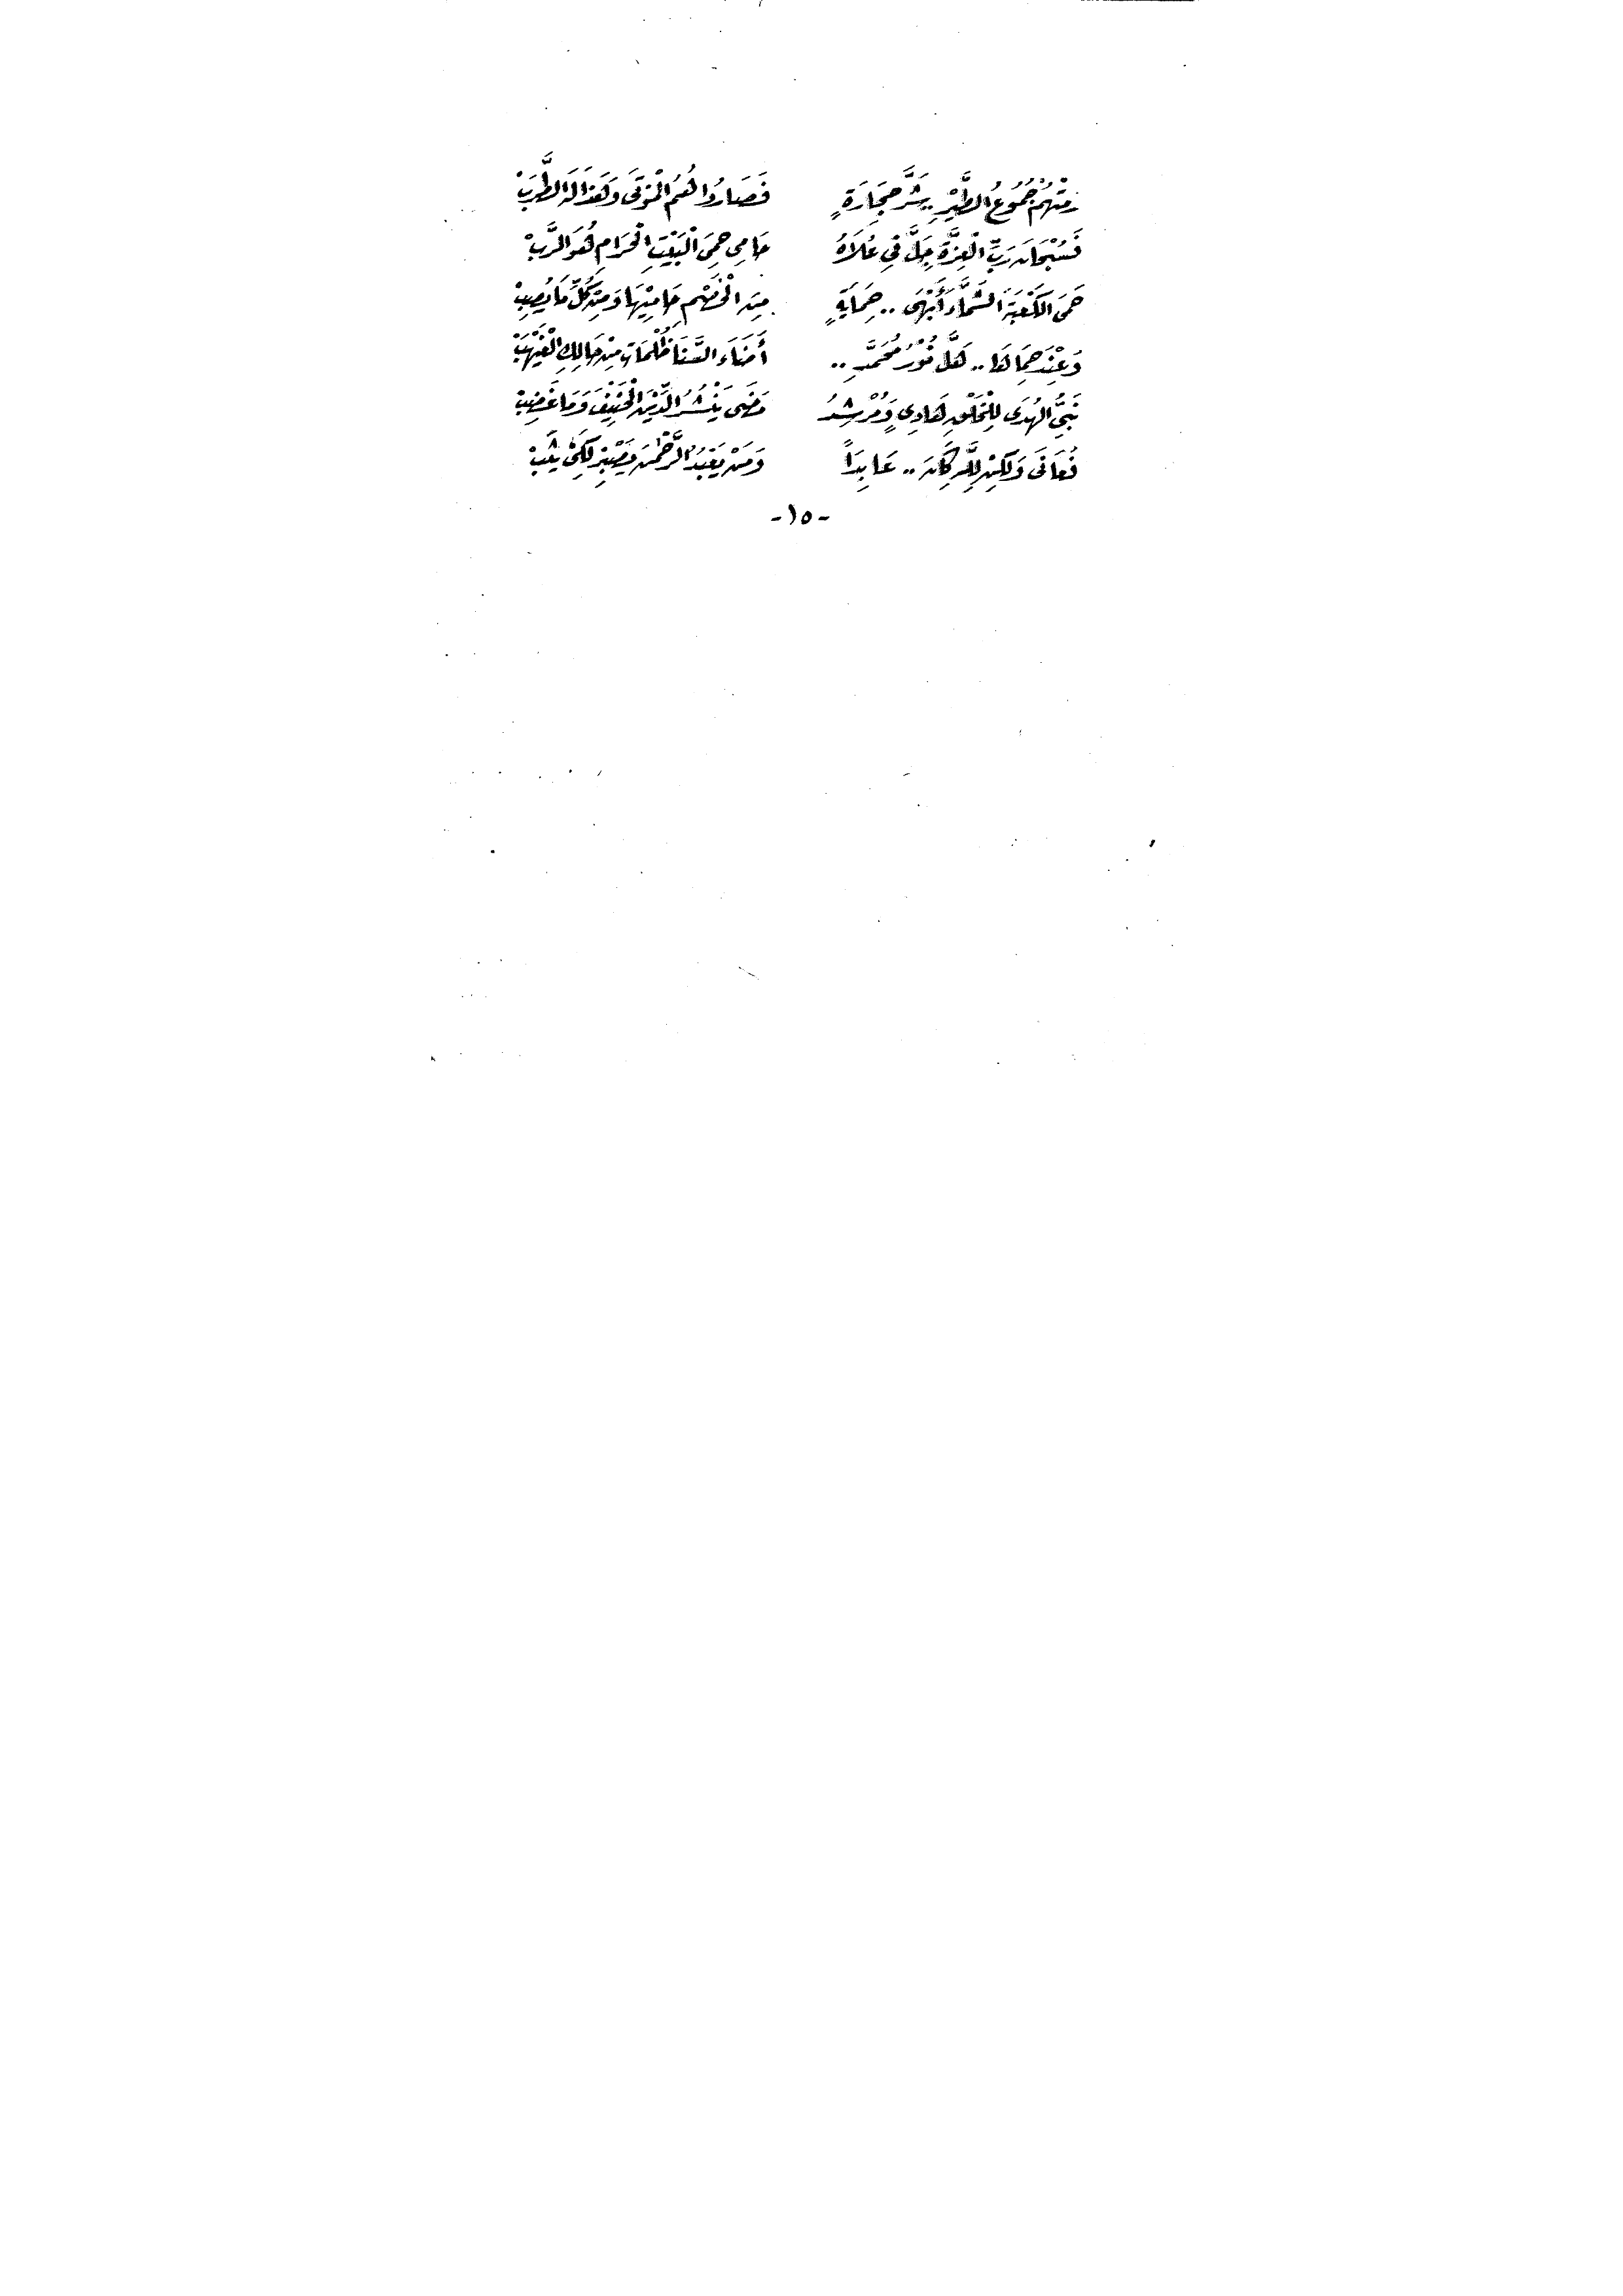 رَمَتْهُمْ جُمُوعُ الطَّيْرِ .. شَرَّ حِجَارَةٍ فَصَارُوا هُمُ الْمَوْتَى وَلَهَذَا لَهَ الطَّرَبْ
فَسُبْحَانَ رَبِّ الْعِزَّةِ جَلَّ فِي عُلَاهُ حَامِي حِمَى الْبَيْتِ الْحَرَامِ هُوَ الرَّبْ
حَمَى الكَعْبَةَ الشَّمَّاءَ أَبْهَى .. حِمَايَةٍ مِنَ الْخَصْمِ حَامِيْهَا وَمِنْ كُلِّ مَا يُصِيبْ
وَعِنْدَ حِمَاهَا .. هَلَّ نُوْرُ مُحَمَّدٍ .. أَضَاءَ السَّنَا ظُلُمَاتٍ مِنْ حَالِكِ الْغَيْهَبْ
نَبِيُّ الهُدَى لِلْخَلْقِ هَادِي وَمُرْشِدُ مَضَى يَنْشُرُ الدِّيْنَ الْحَنِيْفَ وَمَا غَضِبْ
فَعَانَى وَلَكِنْ لِلَّهِ كَانَ .. عَابِدَاً وَمَنْ يَعْبُدُ الرَّحْمٰنَ يَصْبِرْ لِكَيْ يُثَبْ
-١٥-